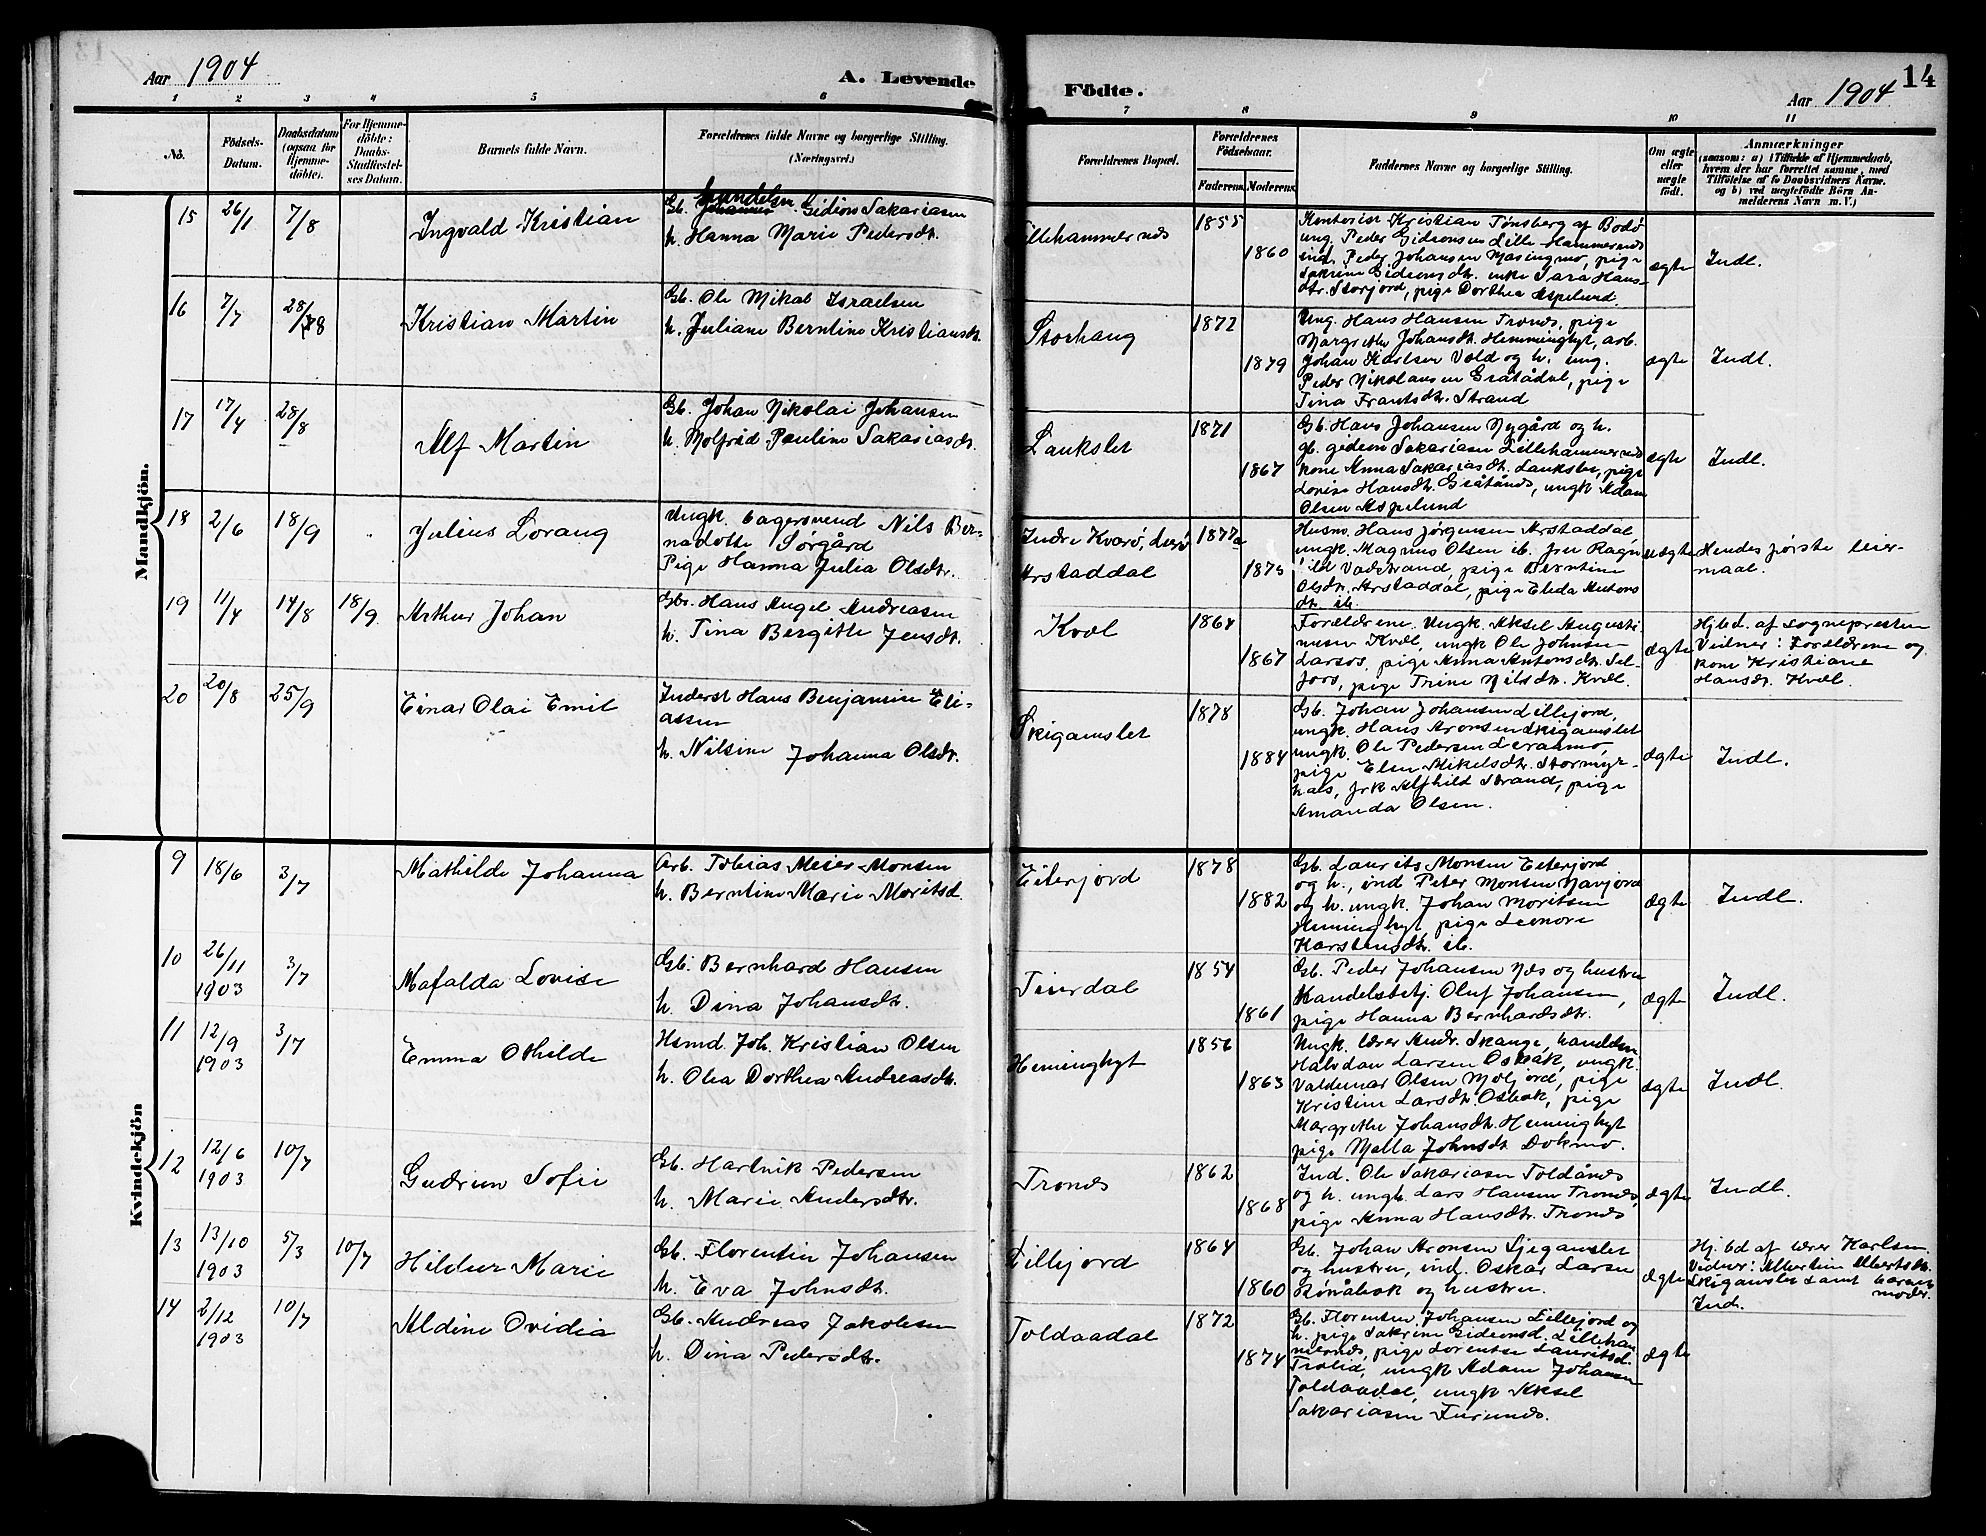 Aar 1904
A. Levende
Födte.
Aar 1904
14
1 2 3 4 5 6 7 8 9 10 11
No.
Födsels-
Datum.
Daabsdatum
(ogsaa for
Hjemme-
döbte).
For Hjemme-
döbte:
Daabs-
Stadfæstel-
ses Datum.
Barnets fulde Navn.
Forældrenes fulde Navne og borgerlige Stilling.
(Næringsvei.)
Forældrenes Bopæl.
Forældrenes
Födselsaar.
Faderens. Moderens.
Faddernes Navne og borgerlige Stilling.
Om ægte
eller
uægte
födt.
Anmærkninger
(saasom: a) i Tilfælde af Hjemmedaab,
hvem der har forrettet samme, med
Tilföielse af to Daabsvidners Navne,
og b) ved uægtefödte Börn An-
melderens Navn m. V.)
Mandkjön.
15 26/1 7/8
Ingvald Kristian
Gb. Gideon Sakariasen
h. Hanna Marie Pedersdtr.
Lillehammernes
1855
1860
Kontorist Kristian Tønsberg af Bodø
ung. Peder Gideonsen Lille-Hammernes
ind. Peder Johansen Masingmo, pige
Sakrine Gideonsdtr. enke Sara Hans-
dtr. Storjord, pige Dorthea Aspelund.
ægte
Indl.
16 7/7 28/8
Kristian Martin
Gb. Ole Mikal Israelsen
h. Juliane Berntine Kristiansdtr.
Storhaug
1872
1879
Ung. Hans Hansen Trones, pige
Margrethe Johansdtr. Hemminghyt, arb.
Johan Karlsen Vold og h. ung.
Peder Nikolausen Gråtådal, pige
Tina Frantsdtr. Strand
ægte
Indl.
17 17/4 28/8
Alf Martin
Gb. Johan Nikolai Johansen
h. Molfrid Pauline Sakariasdtr.
Laukslet
1871
1867
Gb. Hans Johansen Nygård og h.
gb. Gideon Sakariasen Lillehammernes
kone Anna Sakariasdtr. Laukslet, pige
Lovise Hansdtr. Gråtånes, ungk Adam
Olsen Aspelund
ægte
Indl.
18 2/6 18/9
Julius Lorang
Ungk. bagersvend Nils Ber-
nadotte Sørgård
Pige Hanna Julia Olsdtr.
Indre Kvarø, Lurø
Arstaddal
1875
Husm. Hans Jørgensen Arstaddal,
ungk. Magnus Olsen ib. frk Ragn-
hild Vadstrand, pige Berntine
Olsdtr. Arstaddal, pige Eleda Antons
dtr. ib.
uægte
Hendes første leier-
maal.
19 11/4 14/8 18/9
Arthur Johan
Gbr. Hans Angel Andreasen
h. Tina Bergitte Jensdtr.
Kvæl
1864
1867
Forældrene. Ungk. Aksel Augusti-
nusen Kvæl, ungk Ole Johnsen
Larsos, pige Anna Antonsdtr. Sel-
fors, pige Trine Nilsdtr. Kvæl.
ægte
Hjbd. af sognepresten
Vidner: Forældrene og
kone Kristiane
Hansdtr. Kvæl.
20 20/8 25/9
Einar Olai Emil
Inderst Hans Benjamin Eli-
assen
h. Nilsine Johanna Olsdtr.
Skigamslet
1878
1884
Gb. Johan Johansen Lillejord,
ungk. Hans Aronsen Skigamslet
ungk. Ole Pedersen Leraamo,
pige Elen Mikelsdtr. Stormyr-
hals, frk Alfhild Strand, pige
Amanda Olsen.
ægte
Indl.
Kvindekjön
9 18/6 3/7
Mathilde Johanna
Arb. Tobias Meier Monsen
h. Berntine Marie Moritsd.
Eiterjord
1878
1882
Gb. Laurits Monsen Eiterjord
og h., ind Peter Monsen Navjord
og h. ungk. Johan Moritsen
Heminghyt, pige Leonore
Karstensdtr. ib.
ægte
Indl.
10 26/11 1903 3/7
Mafalda Lovise
Gb. Bernhard Hansen
h. Dina Johansdtr.
Tverdal
1854
1861
Gb. Peder Johansen Næs og hustru
Handelsbetj. Oluf Johansen,
pige Hanna Bernhardsdtr.
ægte
Indl.
11 12/9 1903 3/7
Emma Othilde
Hsmd. Joh. Kristian Olsen
h. Olea Dorthea Andreasdtr.
Heminghyt
1856
1863
Ungk. lærer Andr. Skauge, handelsm
Halvdan Larsen Osbak, ungk.
Valdemar Olsen Moljord, pige
Kristine Larsdtr. Osbak, pige
Margrethe Johansdtr. Heminghyt
pige Mella Johnsdtr Dokmo.
ægte
Indl.
12 12/6 1903 10/7
Gudrun Sofie
Gb. Hartvik Pedersen
h. Marie Andersdtr.
Trones
1862
1868
Ind. Ole Sakariasen Toldånes
og h. ungk. Lars Hansen Trones,
pige Anna Hansdtr. Trones
ægte
Indl.
13 13/10 1903 5/3 10/7
Hildur Marie
Gb. Florentin Johansen
h. Eva Johnsdtr.
Lillejord
1864
1860
Gb. Johan Aronsen Sjegamslet
og hustru, ind. Oskar Larsen
Rønåbak og hustru.
ægte
Hj.bd af lærer Karlsen.
Vidner: Albertine Albertsdtr.
Skigamslet samt barnets
moder.
Ind.
14 2/12 1903 10/7
Aldine Ovidia
Gb. Andreas Jakobsen
h. Dina Pedersdtr.
Toldaadal
1872
1874
Gb. Florentsen Johansen Lillejord og
h. pige Sakrine Gideonsd. Lilleham
mernes, pige Lorentse Lauritsd.
Trolid, ungk Adam Johansen
Toldaadal, ungk Aksel
Sakariasen Furunes.
ægte